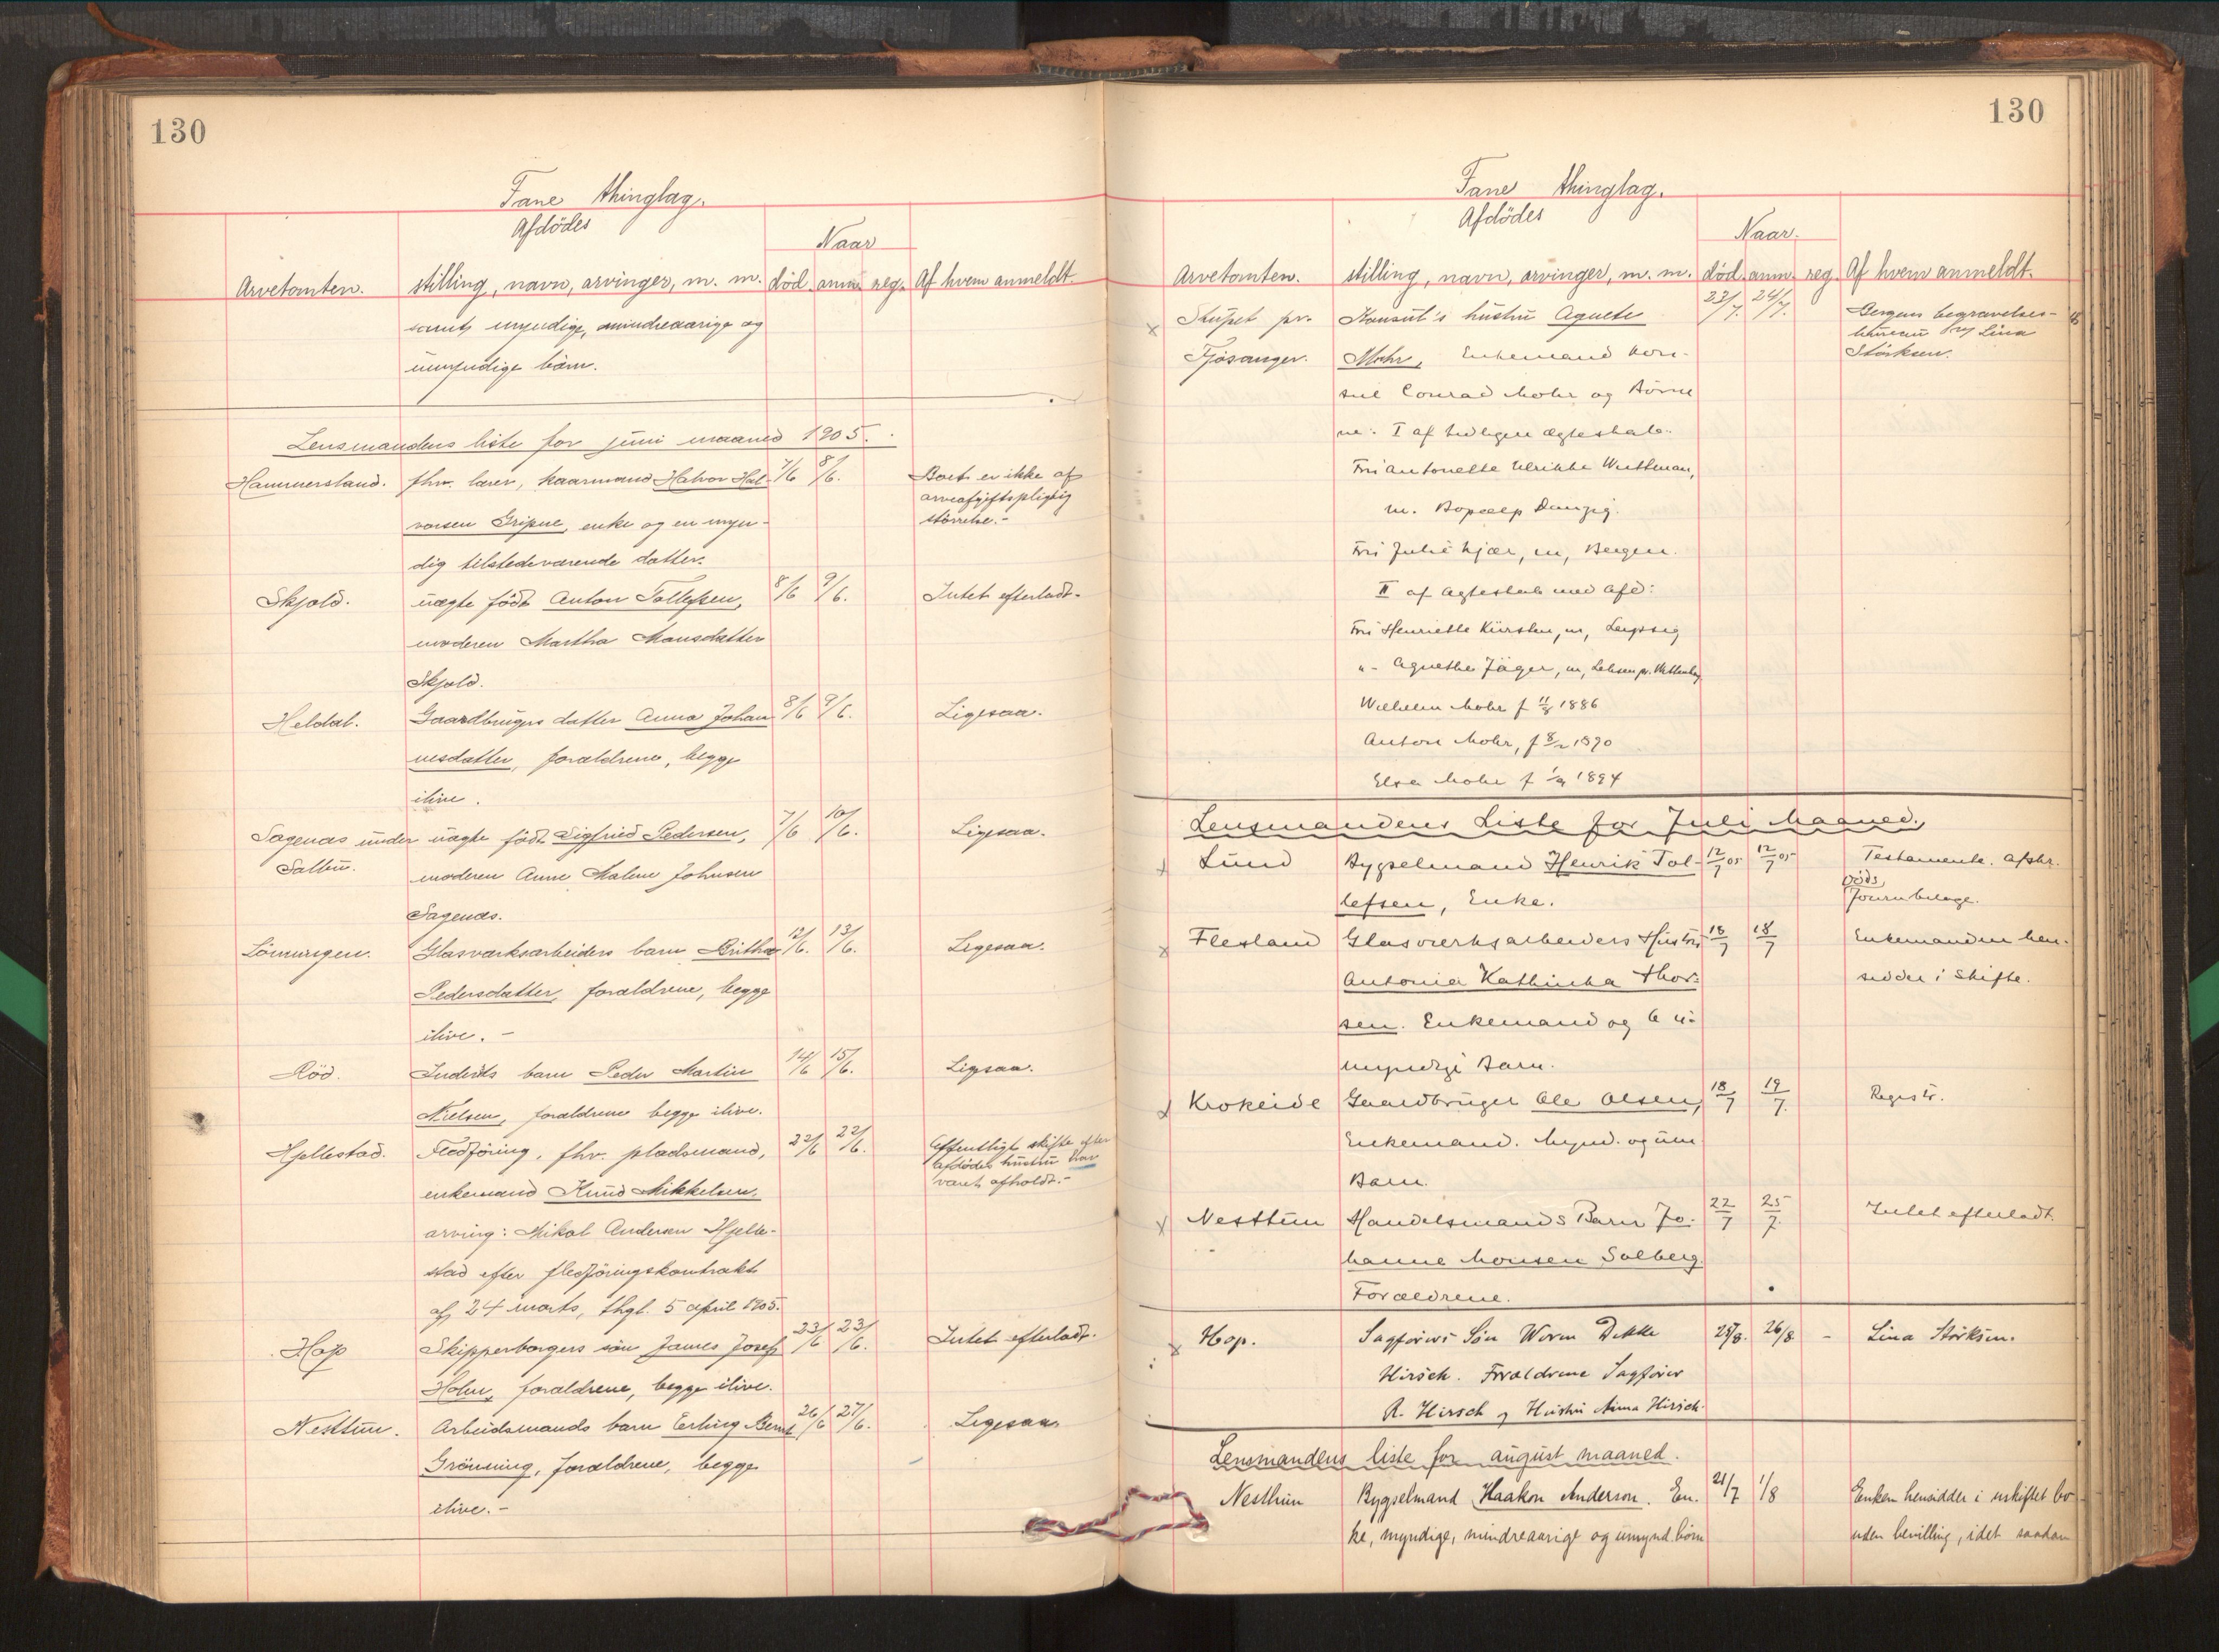 130
Fane thinglag.
Afdödes
Naar
Arvetomten. stilling, navn, arvinger, m. m. död. anm. reg. Af hvem anmeldt.
samt myndige, mindreaarige og
umyndige børn.
Lensmandens liste for juni maaned 1905.
Hammersland. fhv. lærer, kaarmand Halvor Hal- 7/6 8/6. Boet er ikke af
arveafgiftspligtig
vorsen Gripne, enke og en myn- størrelse.-
dig tilstedeværende datter.
Skjold. uægte født Anton Tollefsen, 8/6 9/6. Intet efterladt.
moderen Martha Monsdatter
Skjold.
Heldal. Gaardbrugers datter Anna Johan- 8/6 9/6. Ligesaa.
nesdatter, forældrene, begge
ilive.
Sagenæs under uægte født Sigfried Pedersen, 7/6 10/6. Ligesaa.
Sælen. moderen Anne Malene Johnsen
Sagenæs.
Lönningen. Glasværksarbeiders barn Britha 12/6. 13/6. Ligesaa.
Pedersdatter, forældrene, begge
ilive. -
Röd. Indersts barn Peder Martin 14/6 15/6. Ligesaa.
Nielsen, forældrene begge ilive.
Hjellestad. Fledföring, fhv. pladsmand, 22/6 22/6. Offentligt skifte efter
afdödes hustru har
enkemand Knud Mikkelsen, været afholdt.-
arving: Nikol Andersen Hjelle-
stad efter fledföringskontrakt
af 24 marts, thgl. 5 april 1905.
Hop Skipperborgers sön James Josef 23/6 23/6. Intet efterladt.
Holm, forældrene, begge ilive.
Nesttun. Arbeidsmands barn Erling Bernt 26/6 27/6. Ligesaa
Grönning, forældrene, begge
ilive.-
130
Fane thinglag.
Afdödes
Naar.
Arvetomten. stilling, navn, arvinger, m. m. död. anm. reg. Af hvem anmeldt.
Stupet pr. Konsul's hustru Agnete 23/7. 24/7. Bergens begravelses-
bureau v/ Lina
Fjösanger. Mohr, Enkemand kon- Störksen.
sul Conrad Mohr og Börne
ne: I af tidligere ægteskab:
Fru Antonette Ulrikke Wuttman,
m. Bopæl Danzig.
Fru Julie Kjær, m, Bergen.
II af ægteskab med afd:
Fru Henriette Kürsten, m, Leipzig
"- Agnethe Jäger, m, Lehsen pr. Wittenberg
Wilhelm Mohr f 11/8 1886
Anton Mohr, f 8/2 1890
Elsa Mohr f 1/9 1894
Lensmandens Liste for Juli Maaned.
Lund Bygselmand Henrik Tol- 12/7 05 12/7 05 Testamente. Afskr.
Döds
lefsen, Enke. Journbilage.
Flesland Glasverksarbeiders Hustru 18/7 18/7 Enkemanden hen-
Antonia Kathinka Thor- sidder i Skifte.
sen. Enkemand og 6 u-
myndige Barn.
Krokeide Gaardbruger Ole Olsen, 18/7 19/7. Registr.
Enkemand. Mynd. og um
Barn.
Nesttun Handelsmands Barn Jo- 22/7 25/7. Intet efterladt.
hanne Monsen Solberg.
Forældrene.
Hop. Sagförers Sön Worm Dekke 25/8. 26/8 - Lina Störksen.
Hirsch. Forældrene Sagförer
R. Hirsch og Hustru Anna Hirsch.
Lensmandens liste for august maaned.
Nesttun Bygselmand Haakon Anderson. En- 21/7 1/8 Enken hensidder i uskiftet bo
ke, myndige, mindreaarige og umynd. börn uden bevilling, idet saadan